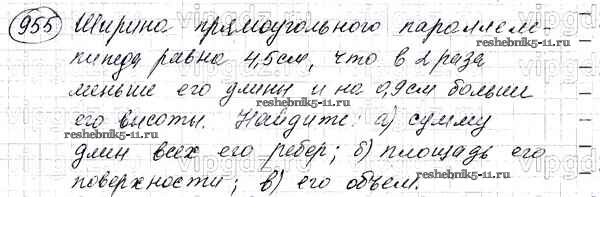 955 Ширина прямоугольного параллеле-
пипеда равна 4,5см, что в 2 раза
меньше его длины и на 0,9см больше
его высоты. Найдите: а) сумму
длин всех его ребер; б) площадь его
поверхности; в) его объем.
reshebnik5-11.ru
reshebnik5-11.ru
reshebnik5-11.ru
reshebnik5-11.ru
reshebnik5-11.ru